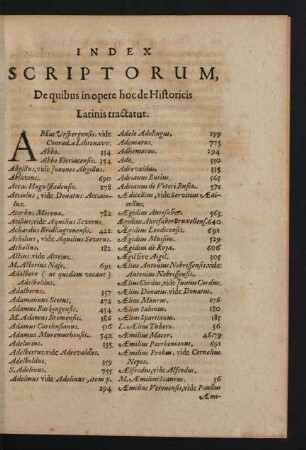 INDEX
SCRIPTORUM,
De quibus in opere hoc de Historicis
Latinis tractatur.
ABbas Urspergensis. vide
Conrad. à Lichtenaw.
Abbo. 354
Abbo Floriacensis. 354
Abgillus, vide Joannes Abgillus.
Ablavius. 690
Accas Hagulstadensis. 278
Accidius, vide Donatus Acciaio-
lus.
Acerbus Morena. 782
Achilles, vide Aquilius Severus.
Achardus Bridlingtonensis. 422
Achilius, vide Aquilius Severus.
Athellus. 182
Albius, vide Atteius.
M. Allerius Naso. 691
Adalbero (ut quidam vocant)
Adelboldus.
Adalbertus.
Adamannus Scotus. 272
Adamus Barkingensis. 543
M. Adamus Bremensis. 386
Adamus Carthusianus. 516
Adamus Maremuthensis. 542
Adelarius. 335
Adelbertus, vide Adrevaldus.
Adelboldus. 359
S. Adelinus. 755
Adelmus vide Adelinus, item p.
294
Adelo Adelingus. 299
Ademarus. 773
Adhemarus. 294
Ado. 330
Adrevaldus. 325
Adrianus Burius. 565
Adrianus de Veteri Busco. 571
Ædicellius, vide Servitius Æai-
cellius.
Ægidius Aurifaber. 563
Ægidius Aurifaber Bruxellensis. 640
Ægidius Leodicensis. 691
Ægidius Musius. 529
Ægidius de Roya. 606
Ægil sive Aigil. 303
Ælius Antonius Nebrissensis, vide
Antonius Nebrissensis.
Ælius Cordus, vide Junius Cordus.
Ælius Donatus, vide Donatus.
Ælius Maurus. 176
Ælius Sabinus. 180
Ælius Spartianus. 185
L. Ælius Tubero. 56
Æmilius Macer. 46.79
Æmilius Parthenianus. 691
Æmilius Probus, vide Cornelius
Nepos.
Ælfrodus, vide Alfredus.
M. Æmilius Scaurus. 36
Æmilius Veronensis, vide Paullus
Æmi-